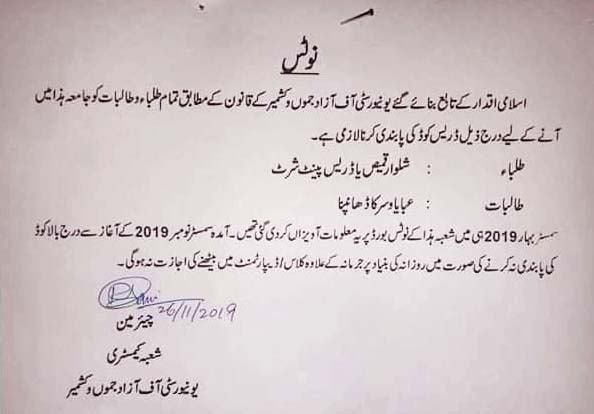 نوٹس
اسلامی اقدار کے تابع بنائے گئے یونیورسٹی آف آزاد جموں و کشمیر کے قانون کے مطابق تمام طلباء و طالبات کو جامعہ ہذا میں
آنے کے لیے درج ذیل ڈریس کوڈ کی پابندی کرنا لازمی ہے۔
طلباء : شلوار قمیض یا ڈریس پینٹ شرٹ
طالبات : عبایا و سر کا ڈھانپنا
سمسٹر بہار 2019 ہی میں شعبہ ہذا کے نوٹس بورڈ پر یہ معلومات آویزاں کر دی گئی تھیں۔ آمدہ سمسٹر نومبر 2019 کے آغاز سے درج بالا کوڈ
کی پابندی نہ کرنے کی صورت میں روزانہ کی بنیاد پر جرمانہ کے علاوہ کلاس/ڈیپارٹمنٹ میں بیٹھنے کی اجازت نہ ہوگی۔
26/11/2019
چیئرمین
شعبہ کیمسٹری
یونیورسٹی آف آزاد جموں و کشمیر